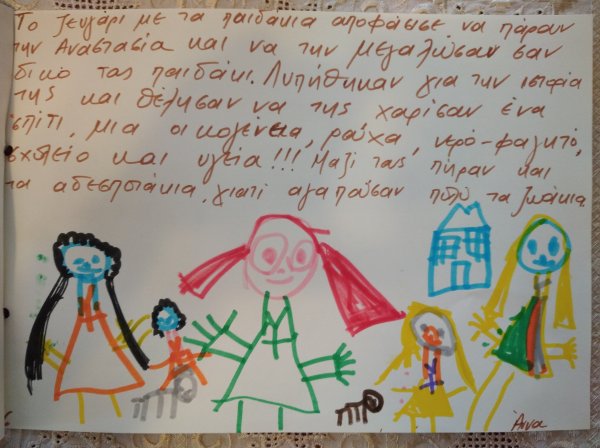 Το ζευγάρι με τα παιδάκια αποφάσισε να πάρουν
την Αναστασία και να την μεγαλώσουν σαν
δικό τους παιδάκι. Λυπήθηκαν για την ιστορία
της και θέλησαν να της χαρίσουν ένα
σπίτι, μια οικογένεια, ρούχα, νερό-φαγητό,
σχολείο και υγεία!!! Μαζί τους πήραν και
τα αδεσποτάκια, γιατί αγαπούσαν πολύ τα ζωάκια.
Άννα